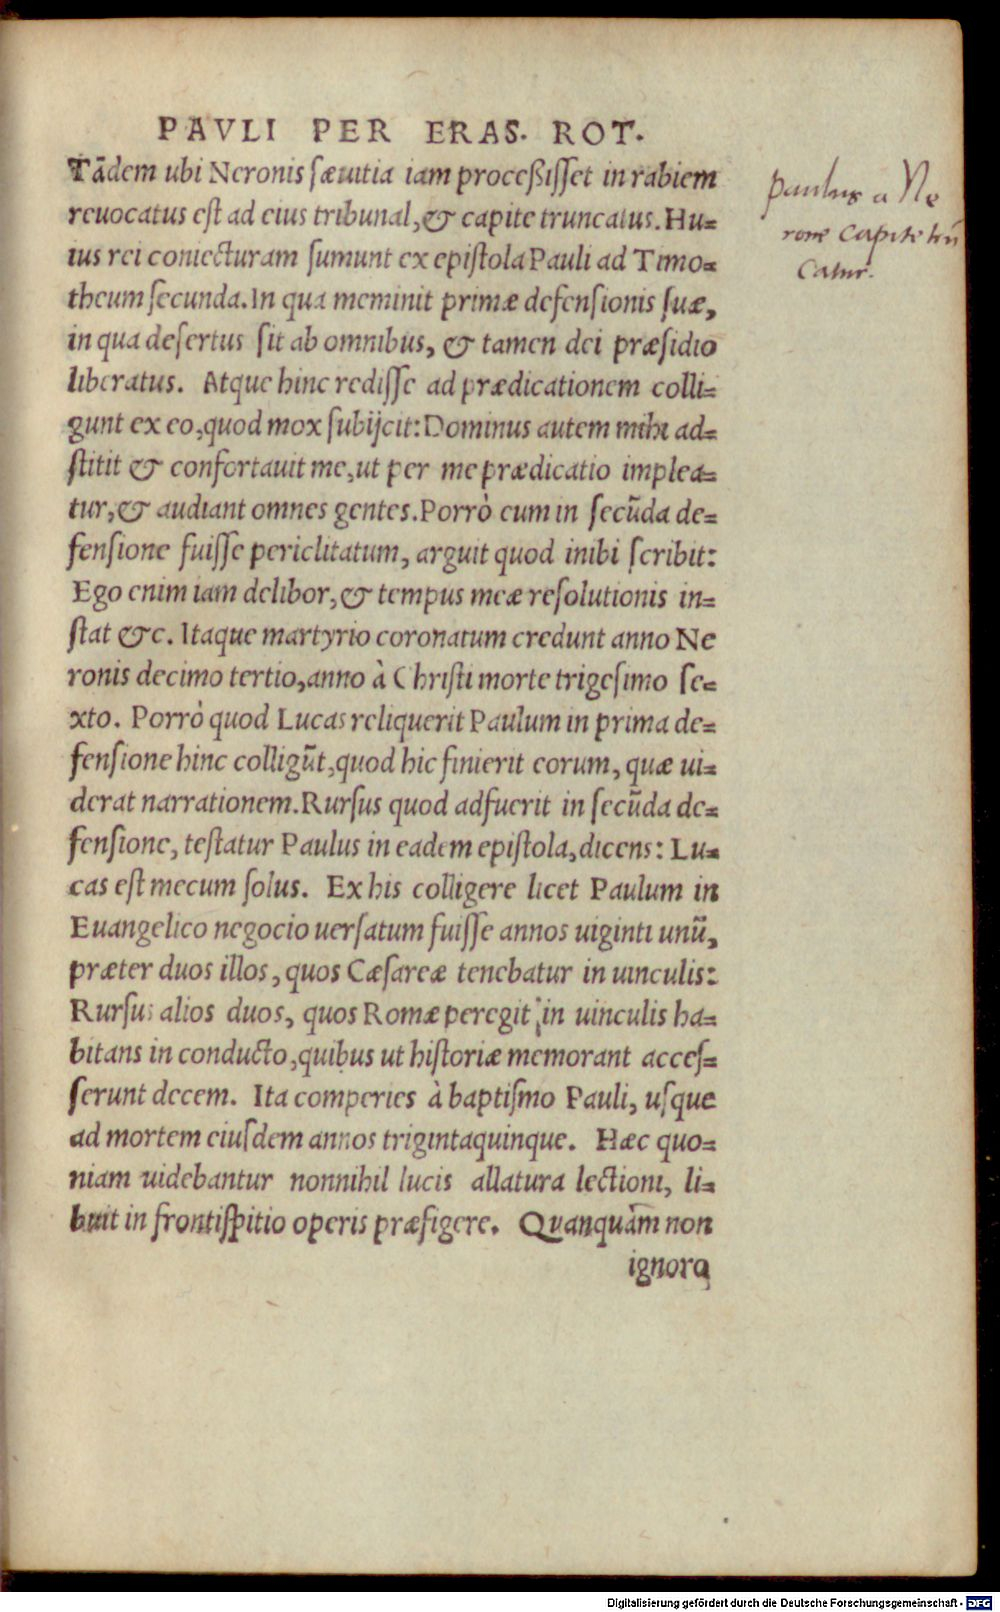 PAVLI PER ERAS. ROT.
Tādem ubi Neronis sæuitia iam proceßisset in rabiem
reuocatus est ad eius tribunal, & capite truncatus. Hu=
ius rei coniecturam sumunt ex epistola Pauli ad Timo=
theum secunda. In qua meminit primæ defensionis suæ,
in qua desertus sit ab omnibus, & tamen dei præsidio
liberatus. Atque hinc redisse ad prædicationem colli=
gunt ex eo, quod mox subijcit: Dominus autem mihi ad=
stitit & confortauit me, ut per me prædicatio implea=
tur, & audiant omnes gentes. Porrò eum in secūda de=
fensione fuisse periclitatum, arguit quod inibi scribit:
Ego enim iam delibor, & tempus meæ resolutionis in=
stat &c. Itaque martyrio coronatum credunt anno Ne
ronis decimo tertio, anno à Christi morte trigesimo se=
xto. Porrò quod Lucas reliquerit Paulum in prima de=
fensione hinc colligūt, quod hic finierit eorum, quæ ui=
derat narrationem. Rursus quod adfuerit in secūda de=
fensione, testatur Paulus in eadem epistola, dicens: Lu=
cas est mecum solus. Ex his colligere licet Paulum in
Euangelico negocio uersatum fuisse annos uiginti unū,
præter duos illos, quos Cæsareæ tenebatur in uinculis:
Rursus alios duos, quos Romæ peregit in uinculis ha=
bitans in conducto, quibus ut historiæ memorant acces=
serunt decem. Ita comperies à baptismo Pauli, usque
ad mortem eiusdem annos trigintaquinque. Hæc quo=
niam uidebantur nonnihil lucis allatura lectioni, li=
buit in frontispitio operis præfigere. Quanquàm non
ignoro
Paulus a Ne
rone capite trū
catur.
Digitalisierung gefördert durch die Deutsche Forschungsgemeinschaft - DFG